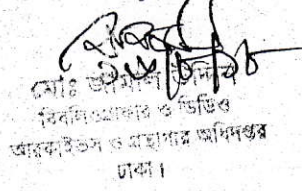 মোঃ জামাল উদ্দিন
বিবলিওগ্রাফার ও ডিডিও
আরকাইভস ও গ্রন্থাগার অধিদপ্তর
ঢাকা।